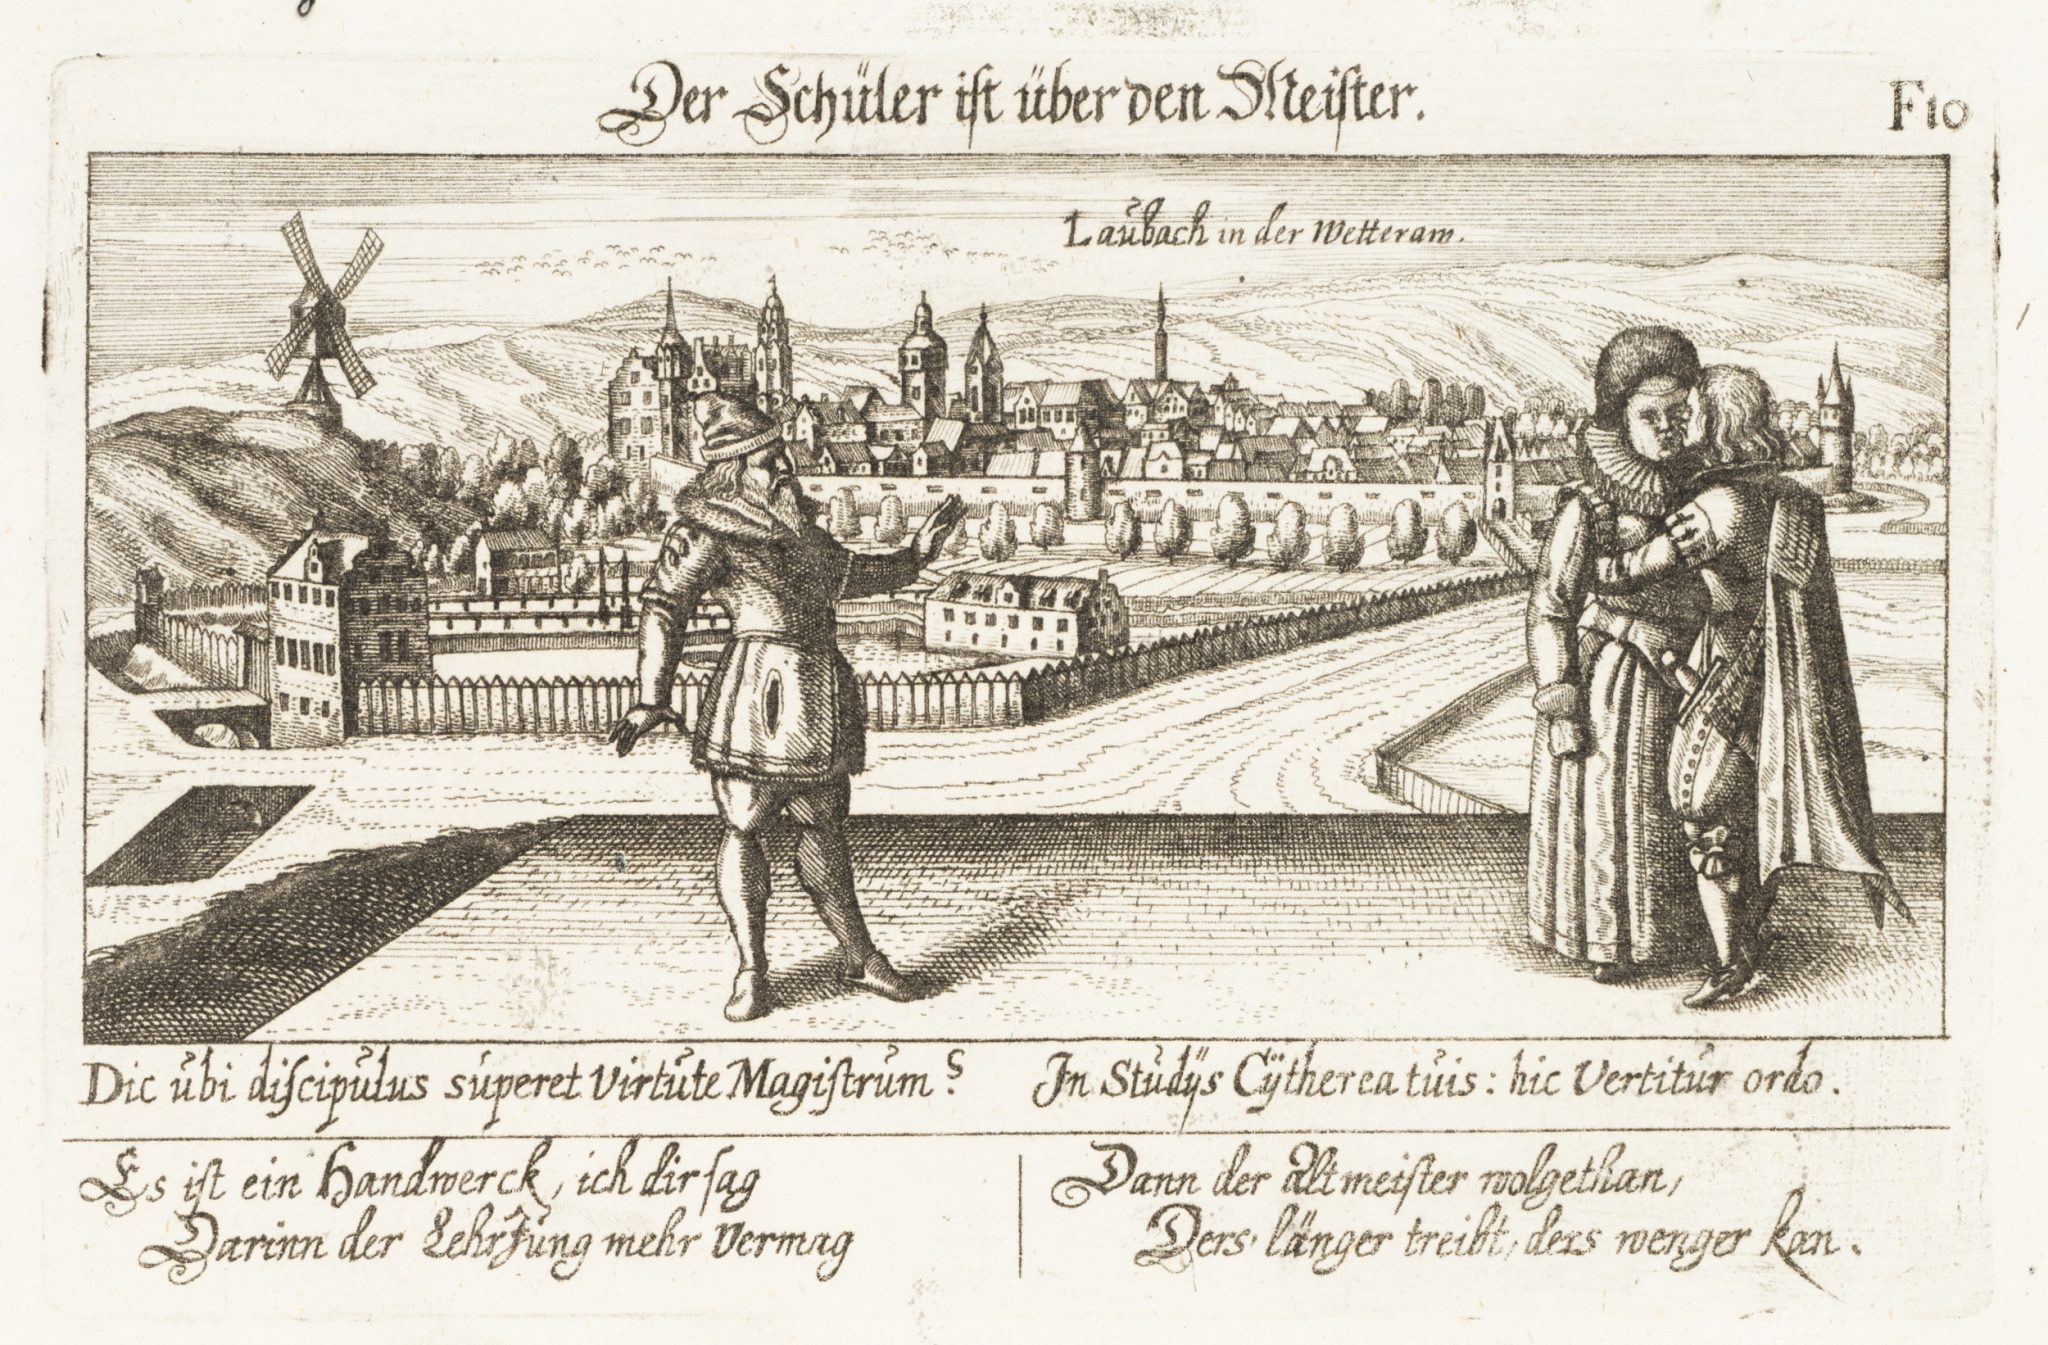 Der Schüler ist über den Meister.
F10
Laŭbach in der Wetteraw.
Dic ŭbi discipŭlus superet Virtŭte Magistrŭm? In Stŭdÿs Cÿtherea tŭis: hic Vertitŭr ordo.
Es ist ein Handwerck, ich dir sag
Darinn der LehrJŭng mehr Vermag
Dann der Altmeister wolgethan,
Ders länger treibt, ders wenger kan.